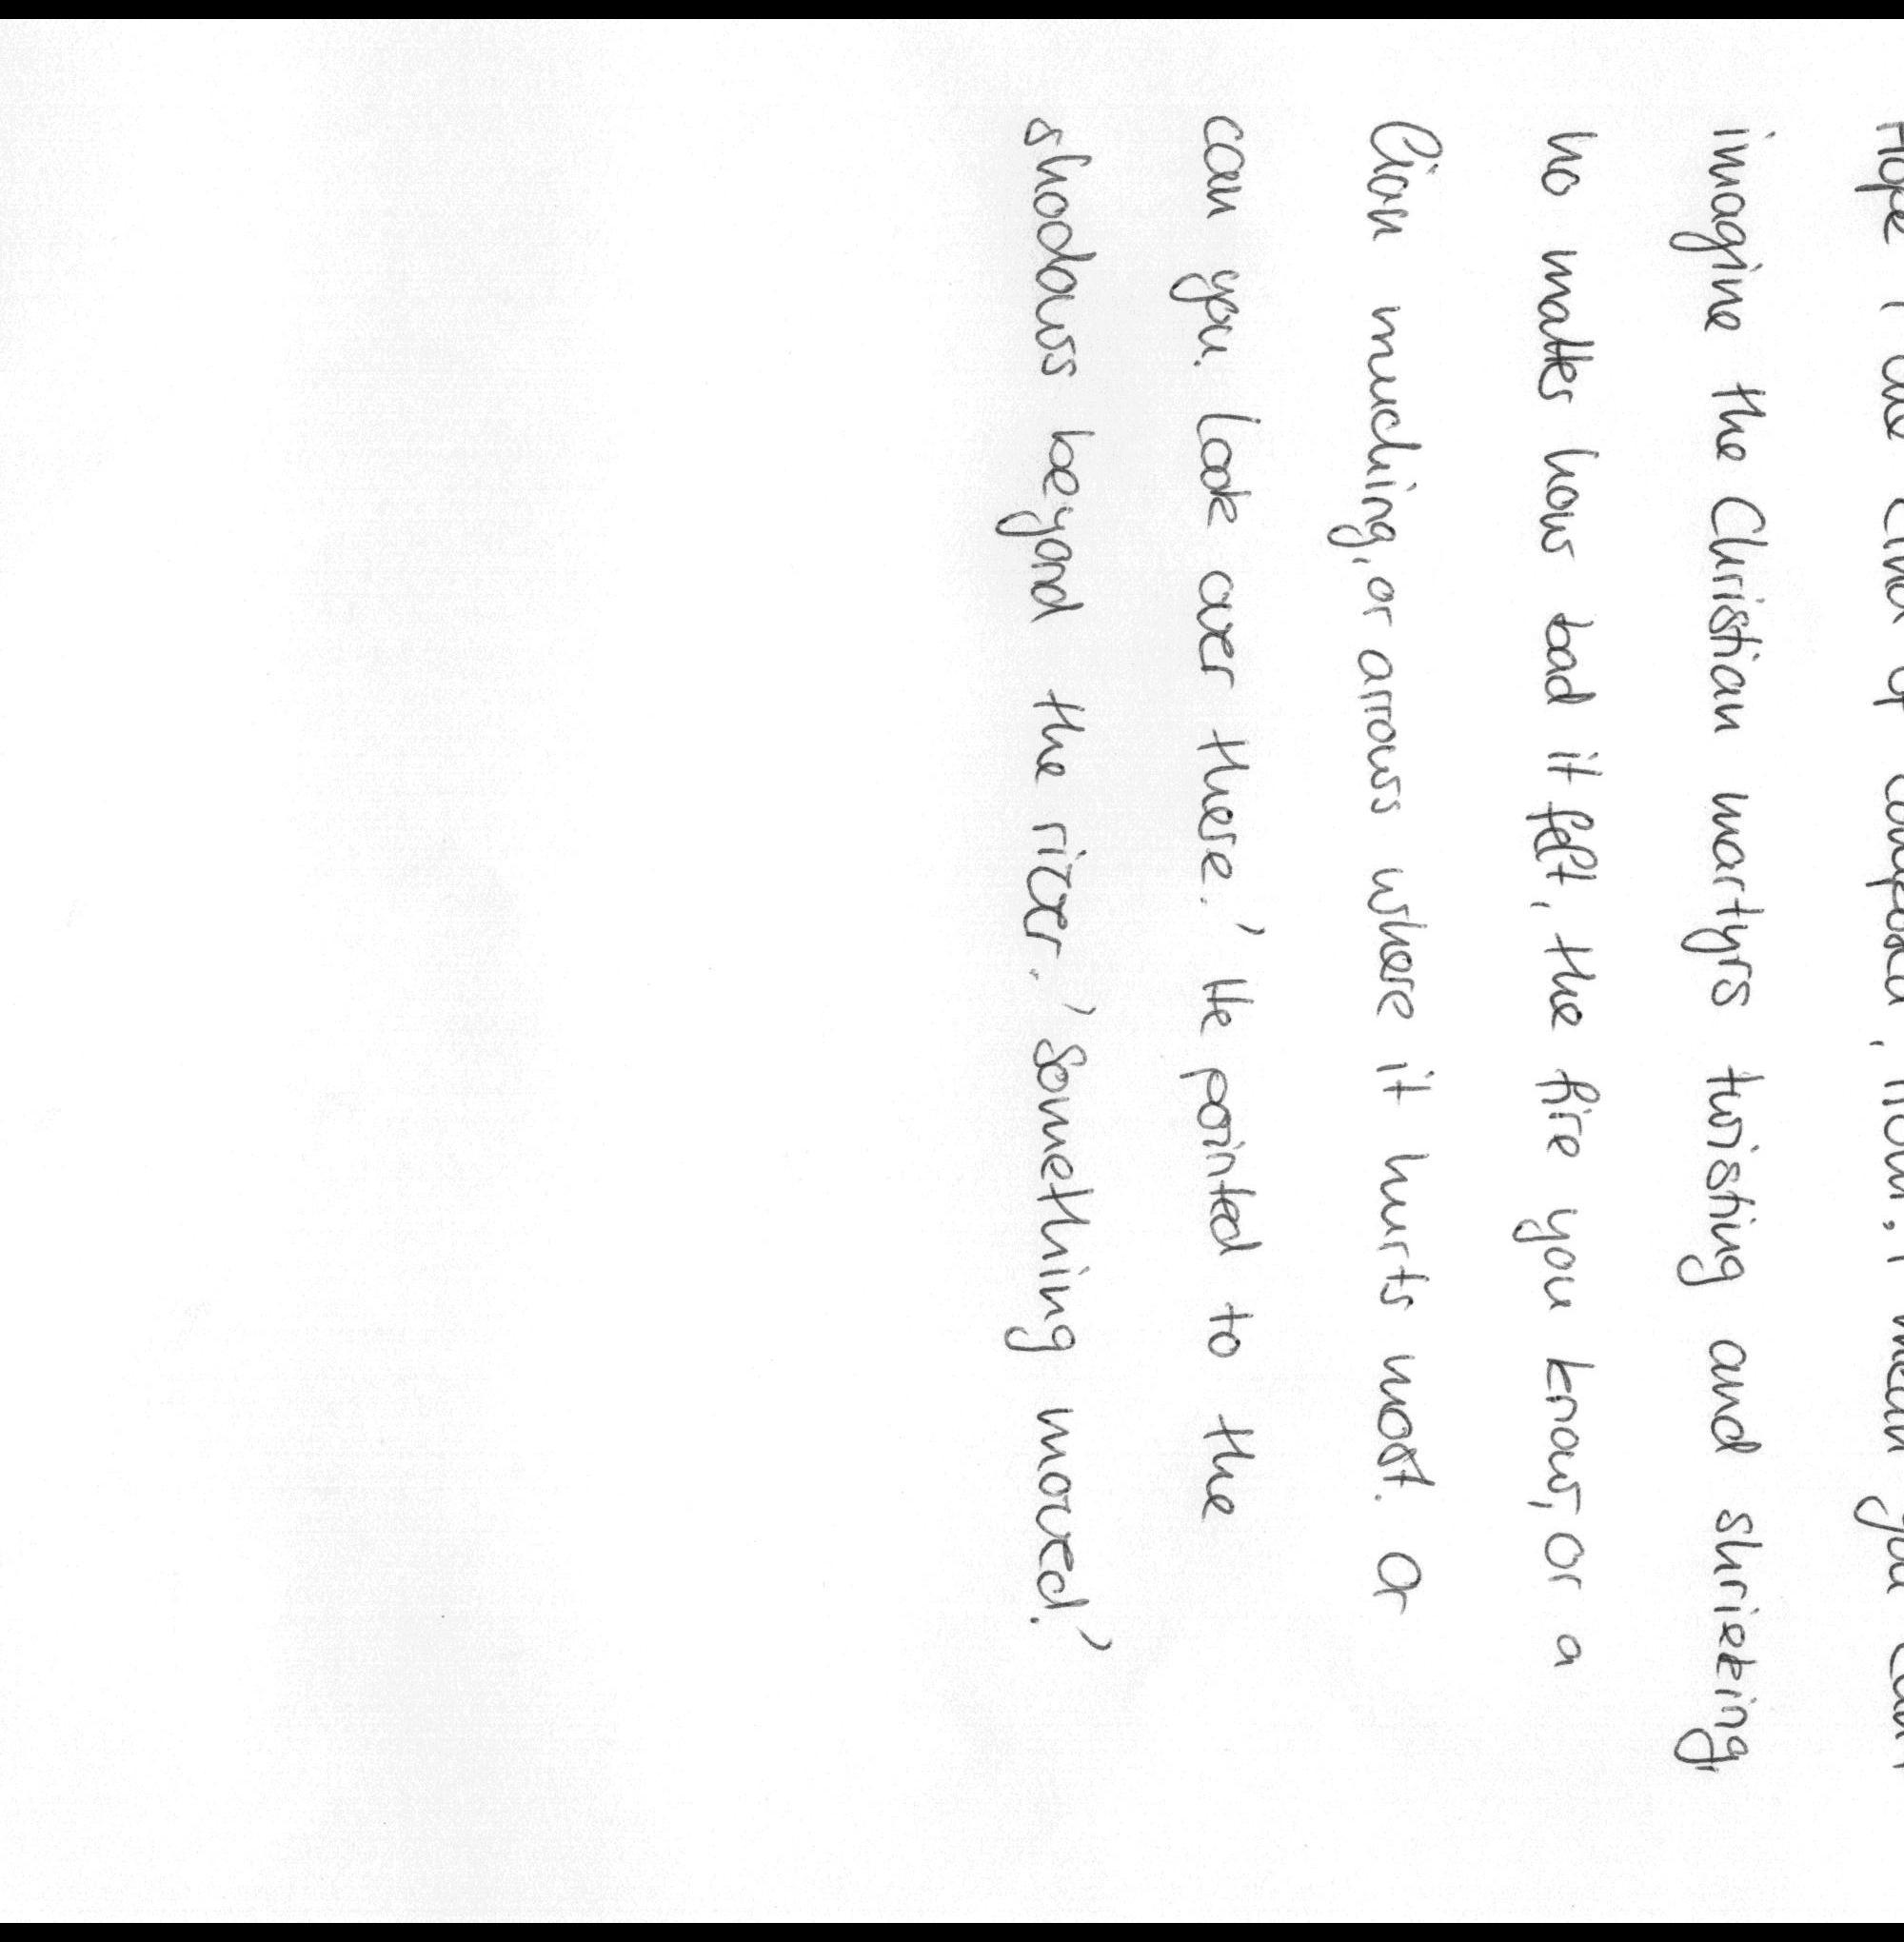 Hope I die kind of composed, I mean you can't
imagine the Christian martyrs twisting and shrieking,
no matter how bad it felt, the fire you know, or a
lion muching, or arrows where it hurts most. Or
can you. Look over there.' He pointed to the
shadows beyond the river. 'Something moved.'